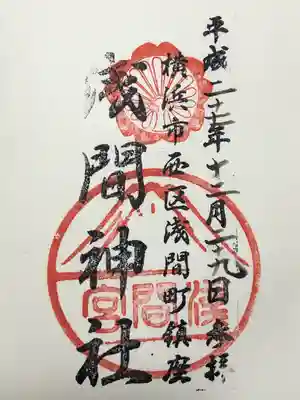 平成二十二年十二月二十九日参拝
横浜市西区浅間町鎮座
浅間神社
浅間宮